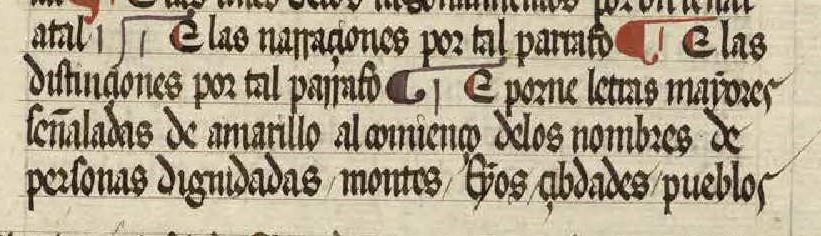 atal ¶ E las narraçiones por tal parrafo ¶ E las
distinçiones por tal parrafo ¶ E porne letras mayores
señaladas de amarillo al comienço delos nombres de
personas dignidadas / montes / Ryos / çibdades / pueblos